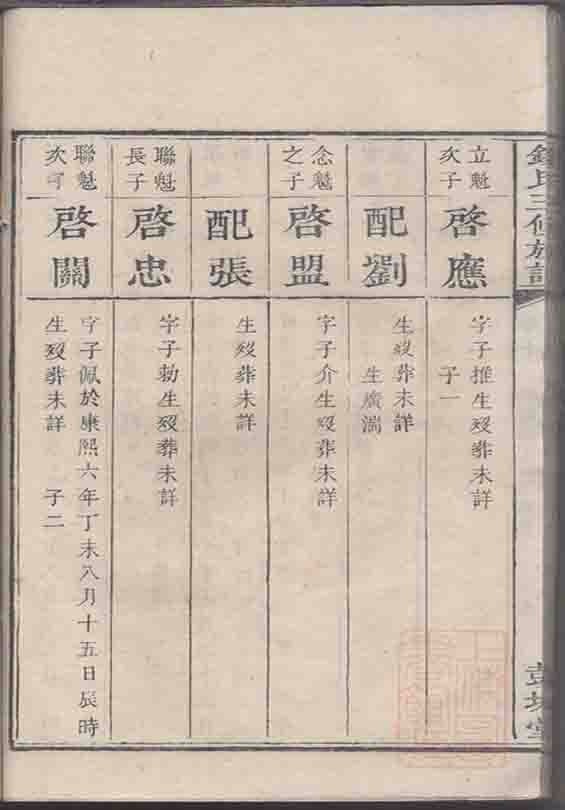 三修族譜
立魁
次子
啓應
字子推生歿葬未詳
子一
配劉
生歿葬未詳
生廣湍
念魁
之子
啓盟
字子介生歿葬未詳
配張
生歿葬未詳
聯魁
長子
啓忠
字子勃生歿葬未詳
聯魁
次子
啓關
字子佩於康熙六年丁未八月十五日辰時
生歿葬未詳 子二